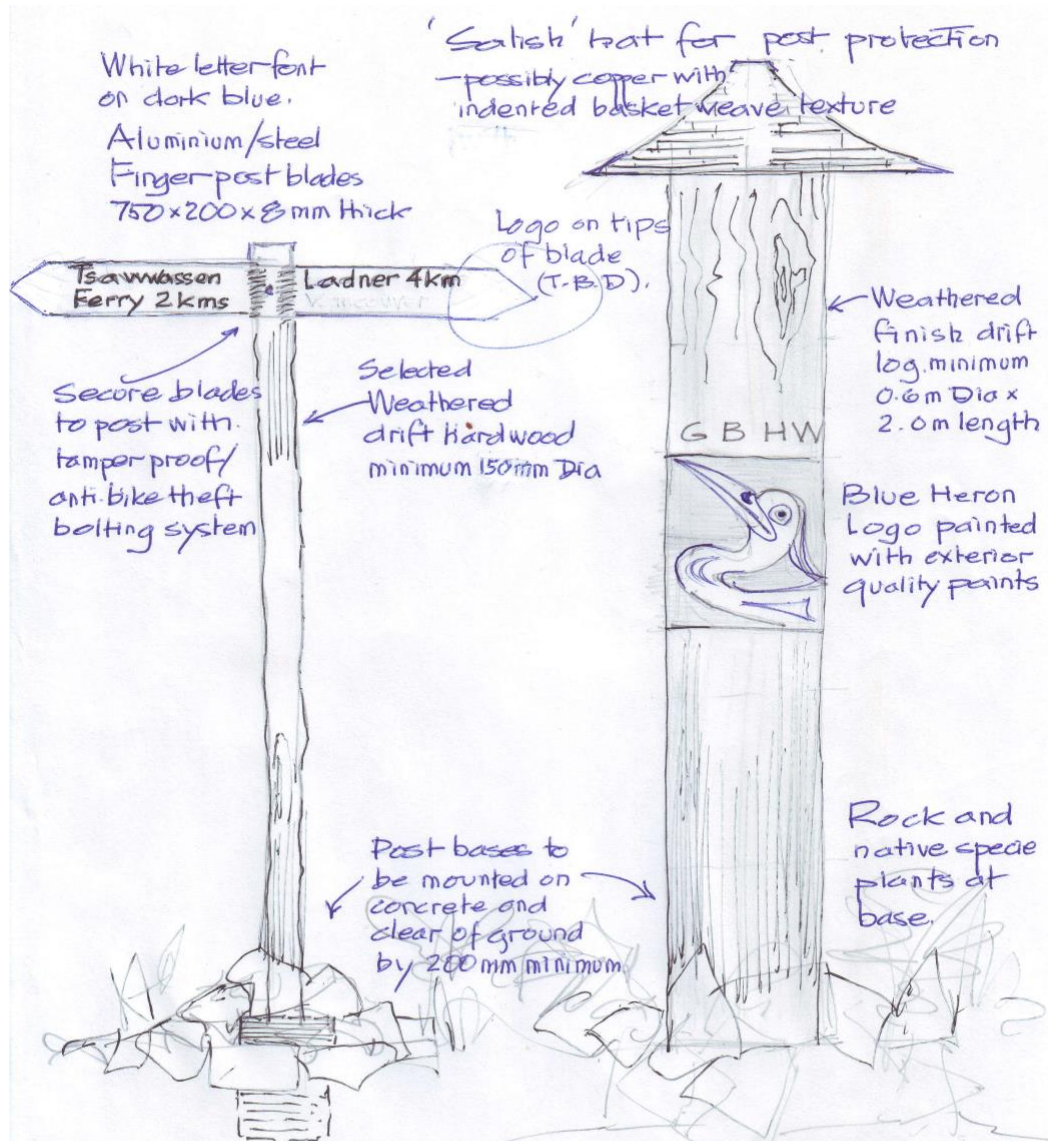 'Salish' hat for post protection
- possibly copper with
indented basket weave texture
White letter font
on dark blue.
Aluminium/steel
Finger post blades
750 x 200 x 8 mm thick
Logo on tips
of blade
(T.B.D).
Tsawwassen
Ferry 2 kms
Ladner 4 km
Vancouver
Weathered
finish drift
log. minimum
0.6m Dia x
2.0m length
Secure blades
to post with
tamper proof/
anti-bike theft
bolting system
Selected
Weathered
drift Hardwood
minimum 150mm Dia
G B H W
Blue Heron
Logo painted
with exterior
quality paints
Post bases to
be mounted on
concrete and
clear of ground
by 200 mm minimum
Rock and
native specie
plants at
base.